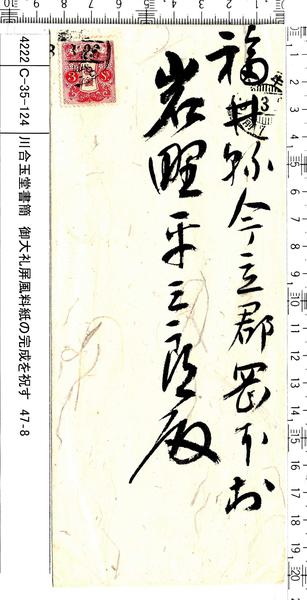 福井縣今立郡岡本村
岩野平三郎殿
4222 C-35-124 川合玉堂書簡 御大礼屏風料紙の完成を祝す 47-8